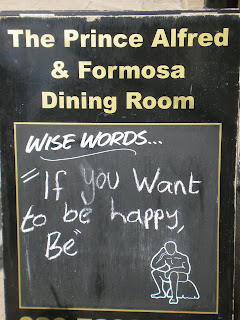 The Prince Alfred
& Formosa
Dining Room
WISE WORDS...
"If you Want
to be happy,
Be"